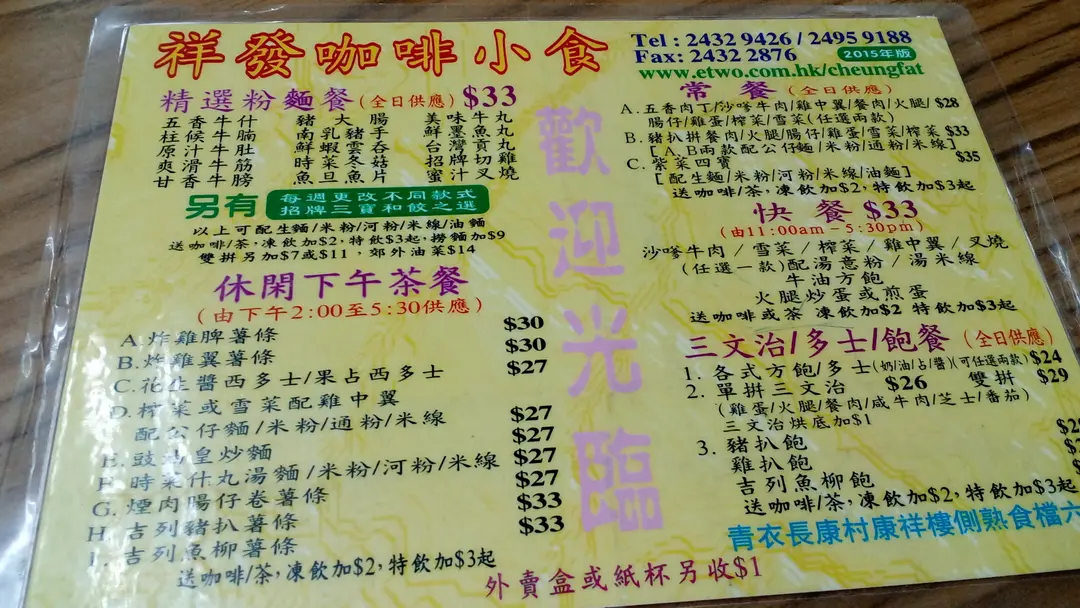 祥發咖啡小食
Tel : 2432 9426 / 2495 9188
Fax: 2432 2876
2015年版
www.etwo.com.hk/cheungfat
精選粉麵餐 (全日供應) $33
五香牛什 豬大腸 美味牛丸
柱候牛腩 南乳豬手 鮮墨魚丸
原汁牛肚 鮮蝦雲吞 台灣貢丸
爽滑牛筋 時菜冬菇 招牌切雞
甘香牛膀 魚旦魚片 蜜汁叉燒
另有 每週更改不同款式
招牌三寶和餃之選
以上可配生麵/米粉/河粉/米線/油麵
送咖啡/茶,凍飲加$2,特飲$3起,撈麵加$9
雙拼另加$7或$11,郊外油菜$14
休閑下午茶餐
(由下午2:00至5:30供應)
A.炸雞脾薯條 $30
B.炸雞翼薯條 $30
C.花生醬西多士/果占西多士 $27
D.榨菜或雪菜配雞中翼
配公仔麵/米粉/通粉/米線 $27
E.豉油皇炒麵 $27
F.時菜什丸湯麵/米粉/河粉/米線 $27
G.煙肉腸仔卷薯條 $27
H.吉列豬扒薯條 $33
I.吉列魚柳薯條 $33
送咖啡/茶,凍飲加$2,特飲加$3起
歡迎光臨
常餐 (全日供應)
A.五香肉丁/沙嗲牛肉/雞中翼/餐肉/火腿/ $28
腸仔/雞蛋/榨菜/雪菜(任選兩款)
B.豬扒拼餐肉/火腿/腸仔/雞蛋/雪菜/榨菜 $33
[A,B兩款配公仔麵/米粉/通粉/米線]
C.紫菜四寶 $35
[配生麵/米粉/河粉/米線/油麵]
送咖啡/茶,凍飲加$2,特飲加$3起
快餐 $33
(由11:00am-5:30pm)
沙嗲牛肉/雪菜/榨菜/雞中翼/叉燒
(任選一款)配湯意粉/湯米線
牛油方飽
火腿炒蛋或煎蛋
送咖啡或茶 凍飲加$2 特飲加$3起
三文治/多士/飽餐 (全日供應)
1. 各式方飽/多士(奶/油/占/醬)(可任選兩款) $24
2. 單拼三文治 $26 雙拼 $29
(雞蛋/火腿/餐肉/咸牛肉/芝士/番茄)
三文治烘底加$1
3. 豬扒飽
雞扒飽
吉列魚柳飽
送咖啡/茶,凍飲加$2,特飲加$3起
青衣長康村康祥樓側熟食檔六
外賣盒或紙杯另收$1